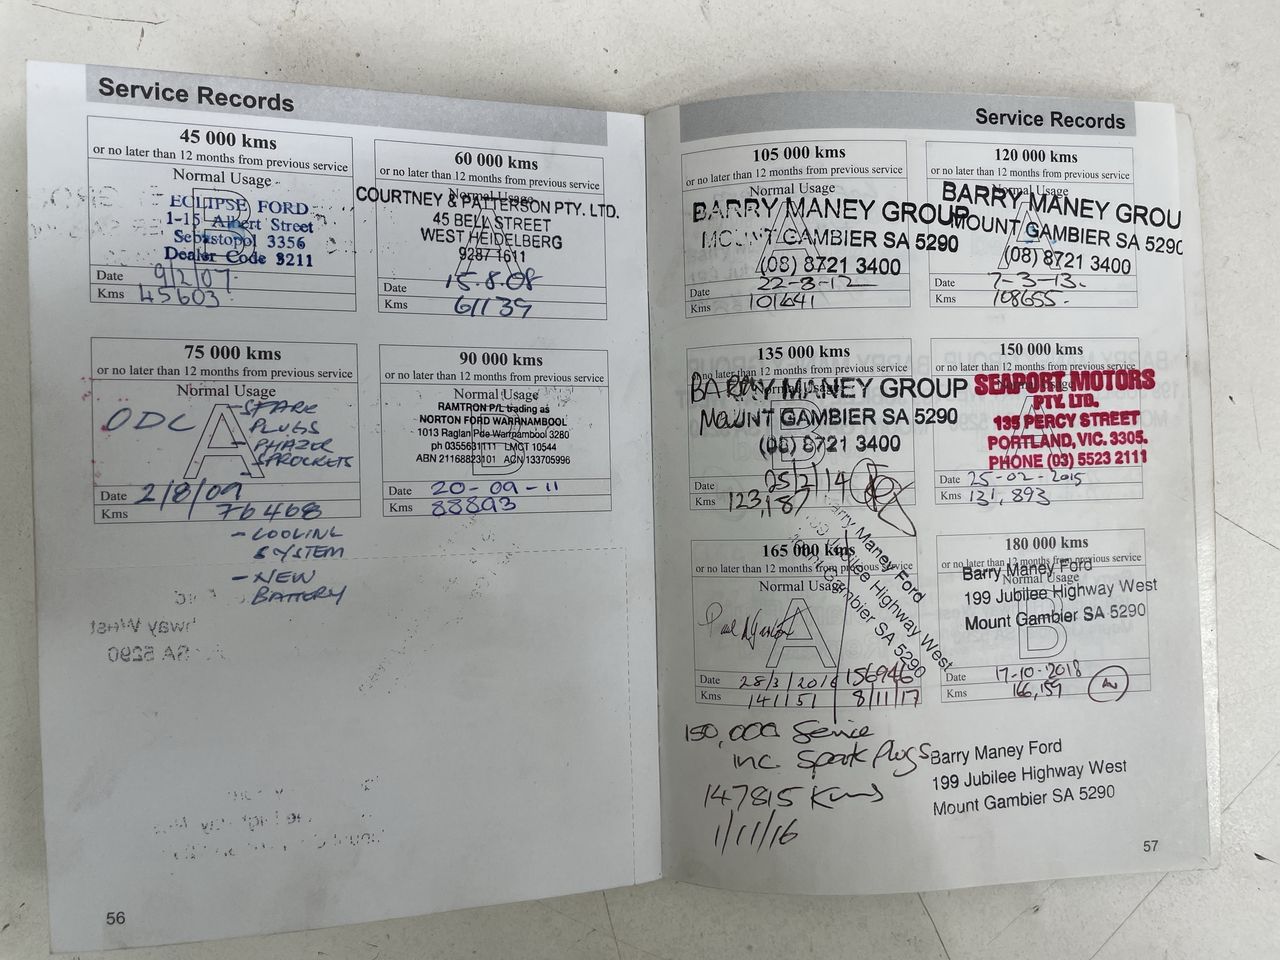 Service Records
45 000 kms
or no later than 12 months from previous service
Normal Usage
B
ECLIPSE FORD
1-15 Albert Street
Sebastopol 3356
Dealer Code 3211
Date 9/2/07
Kms 45603
60 000 kms
or no later than 12 months from previous service
Normal Usage
A
COURTNEY & PATTERSON PTY. LTD.
45 BELL STREET
WEST HEIDELBERG
9287 1611
Date 15.8.08
Kms 61139
75 000 kms
or no later than 12 months from previous service
Normal Usage
A
ODC
- SPARK
PLUGS
- PHAZER
SPROCKETS
Date 2/8/09
Kms 76468
- COOLING
SYSTEM
- NEW
BATTERY
90 000 kms
or no later than 12 months from previous service
Normal Usage
B
RAMTRON P/L trading as
NORTON FORD WARRNAMBOOL
1013 Raglan Pde Warrnambool 3280
ph 0355631111 LMCT 10544
ABN 21168823101 ACN 133705996
Date 20-09-11
Kms 88893
56
Service Records
105 000 kms
or no later than 12 months from previous service
Normal Usage
A
BARRY MANEY GROUP
MOUNT GAMBIER SA 5290
(08) 8721 3400
Date 22-8-12
Kms 101641
120 000 kms
or no later than 12 months from previous service
Normal Usage
A
BARRY MANEY GROU
MOUNT GAMBIER SA 5290
(08) 8721 3400
Date 7-3-13
Kms 108655
135 000 kms
or no later than 12 months from previous service
BARRY MANEY GROUP
MOUNT GAMBIER SA 5290
(08) 8721 3400
Date 25/2/14
Kms 123,187
150 000 kms
or no later than 12 months from previous service
Normal Usage
A
SEAPORT MOTORS
PTY. LTD.
135 PERCY STREET
PORTLAND, VIC. 3305.
PHONE (03) 5523 2111
Date 25-02-2015
Kms 131,893
165 000 kms
or no later than 12 months from previous service
Normal Usage
A
Barry Maney Ford
199 Jubilee Highway West
Mount Gambier SA 5290
Date 28/3/2016 156946
Kms 141151 8/11/17
180 000 kms
or no later than 12 months from previous service
Normal Usage
B
Barry Maney Ford
199 Jubilee Highway West
Mount Gambier SA 5290
Date 17-10-2018
Kms 166,159
150,000 Service
inc Spark Plugs
147815 Kms
1/11/16
Barry Maney Ford
199 Jubilee Highway West
Mount Gambier SA 5290
57